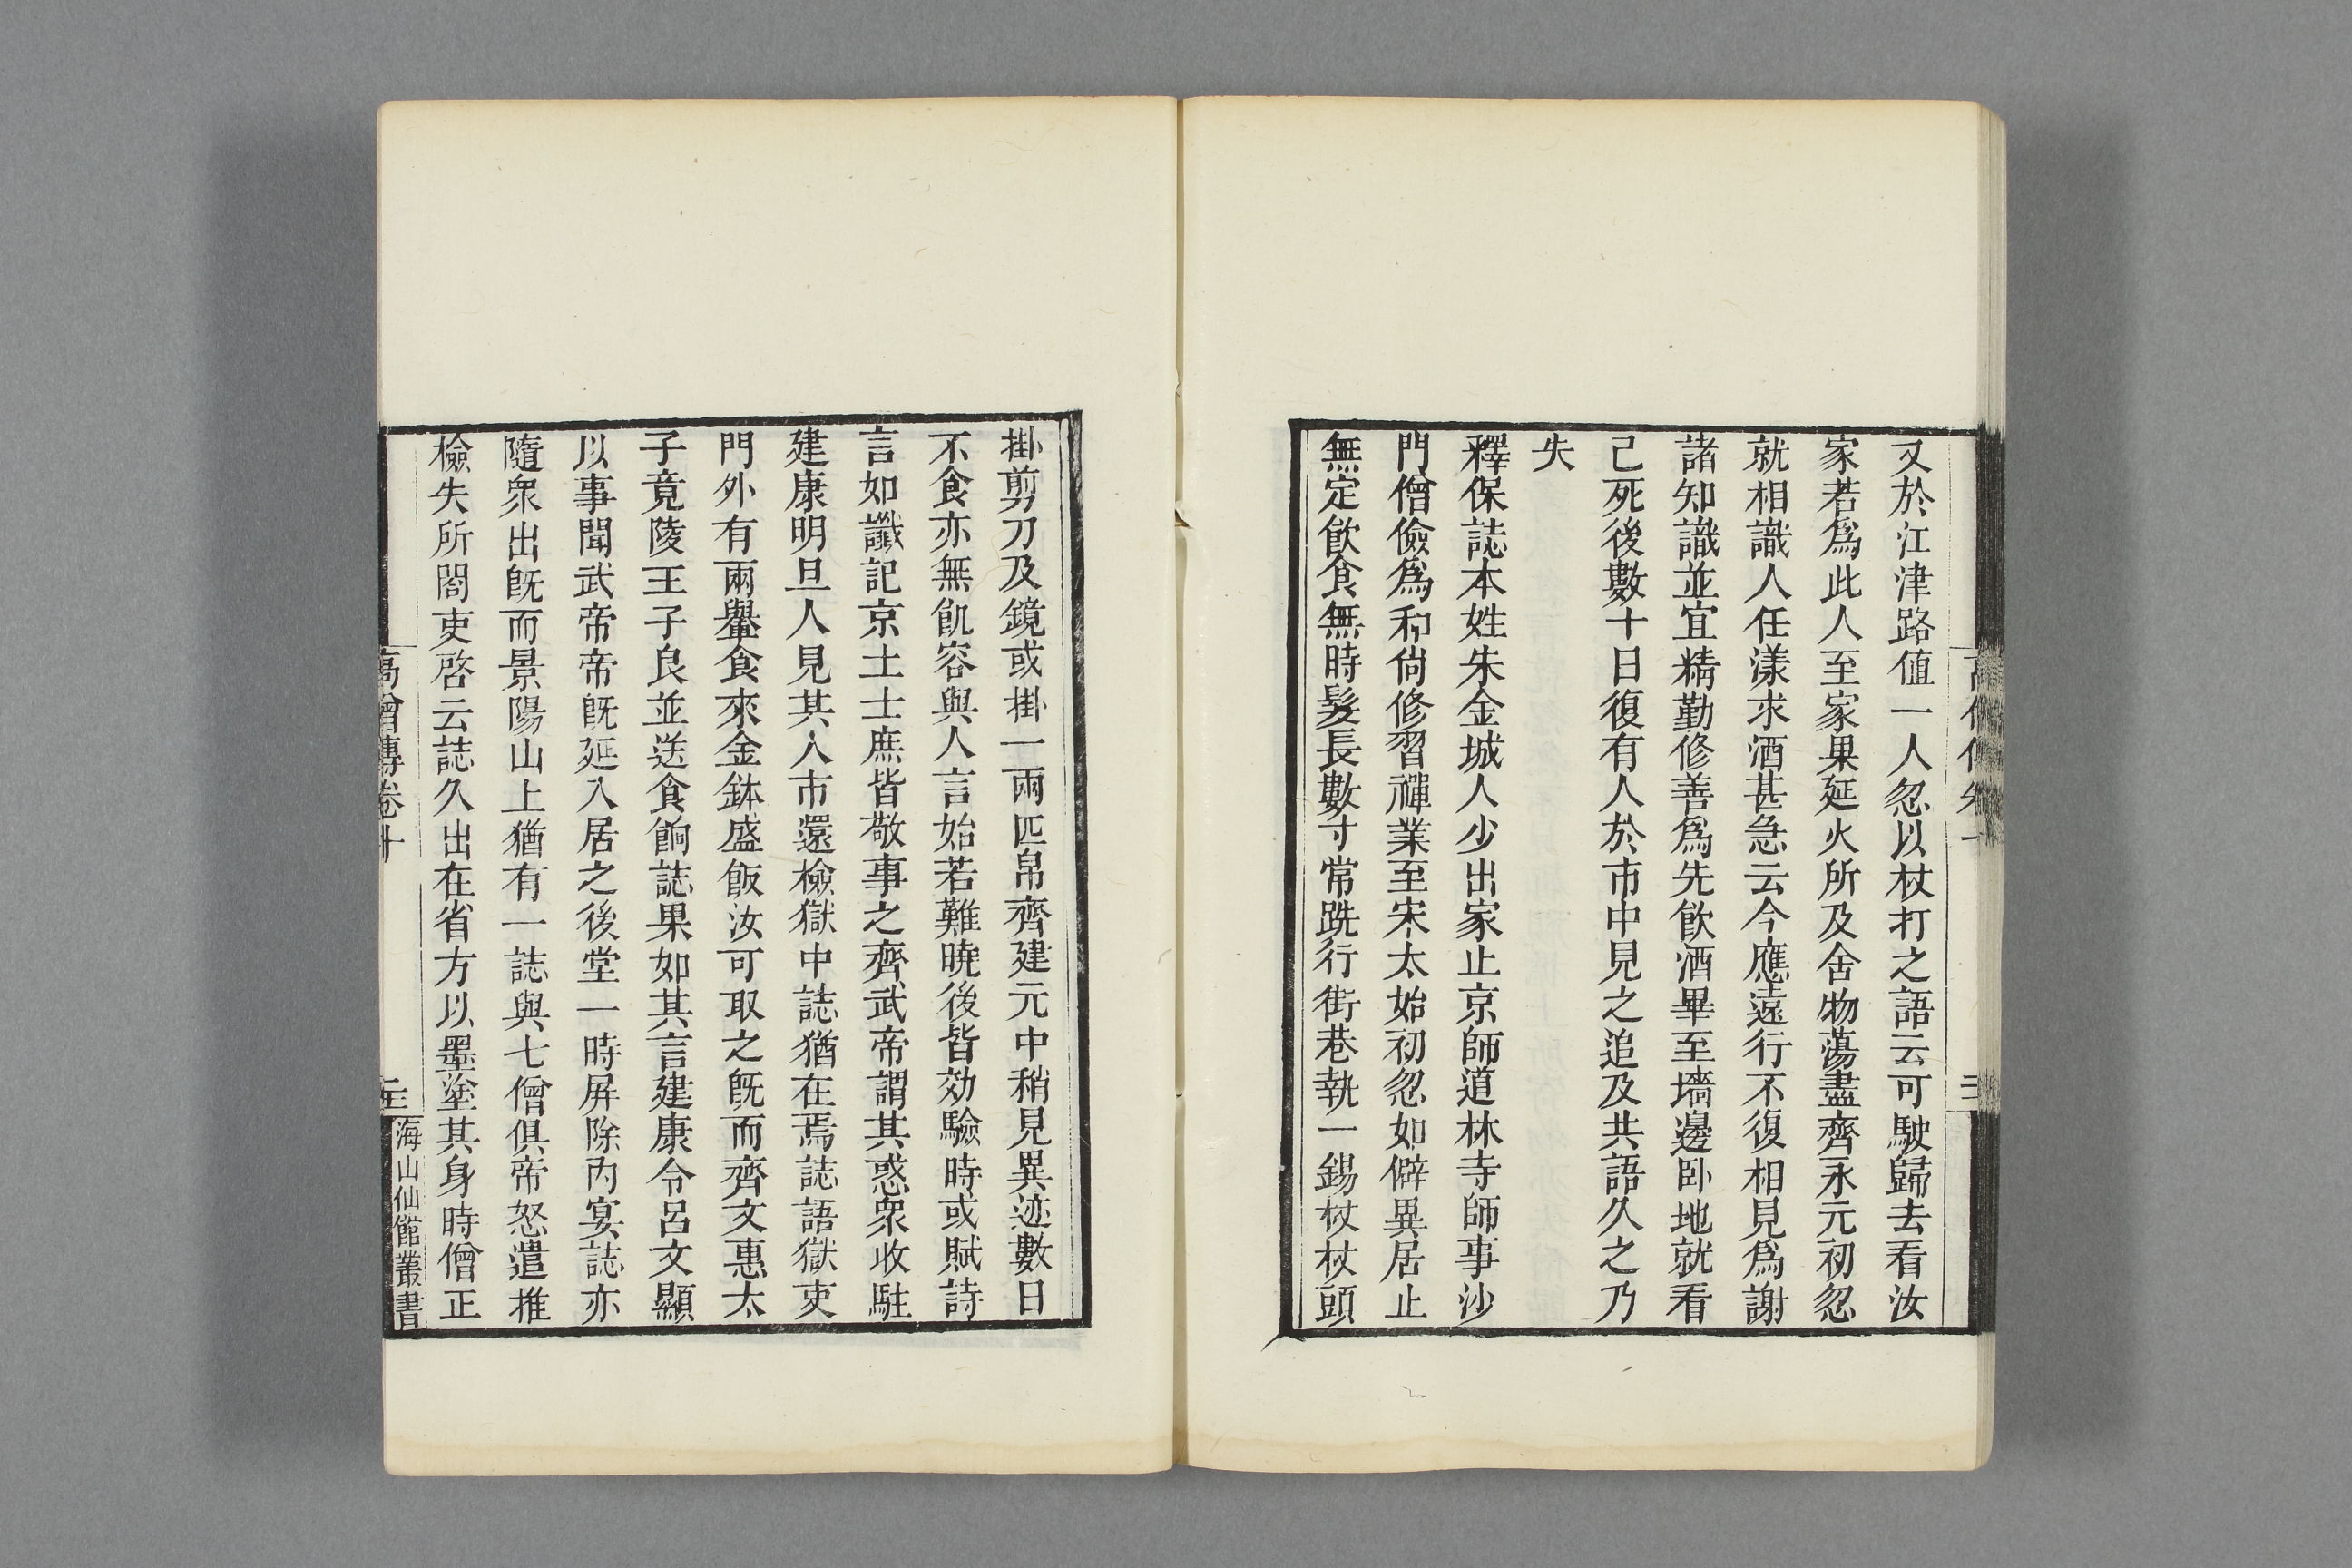 又於江津路值一人忽以杖打之語云可駛歸去看汝
家若爲此人至家果延火所及舍物蕩盡齊永元初忽
就相識人任漾求酒甚急云今應遠行不復相見爲謝
諸知識並宜精勤修善爲先飲酒畢至墻邊卧地就看
已死後數十日復有人於市中見之追及共語久之乃
失
釋保誌本姓朱金城人少出家止京師道林寺師事沙
門僧儉爲和尙修習禪業至宋太始初忽如僻異居止
無定飲食無時髮長數寸常跣行街巷執一錫杖杖頭
掛剪刀及鏡或掛一兩匹帛齊建元中稍見異迹數日
不食亦無飢容與人言始若難曉後皆効驗時或賦詩
言如讖記京土士庶皆敬事之齊武帝謂其惑衆收駐
建康明旦人見其入市還檢獄中誌猶在焉誌語獄吏
門外有兩轝食來金鉢盛飯汝可取之旣而齊文惠太
子竟陵王子良並送食餉誌果如其言建康令呂文顯
以事聞武帝帝旣延入居之後堂一時屏除內宴誌亦
隨衆出旣而景陽山上猶有一誌與七僧俱帝怒遣推
檢失所閤吏啓云誌久出在省方以墨塗其身時僧正
高僧傳卷十
海山仙館叢書